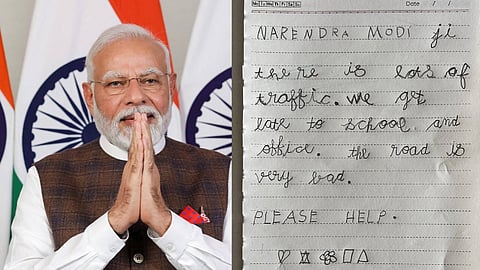 Date / /
NARENDRA MODI ji
there is lots of
traffic. we get
late to school and
office. the road is
very bad.
PLEASE HELP.